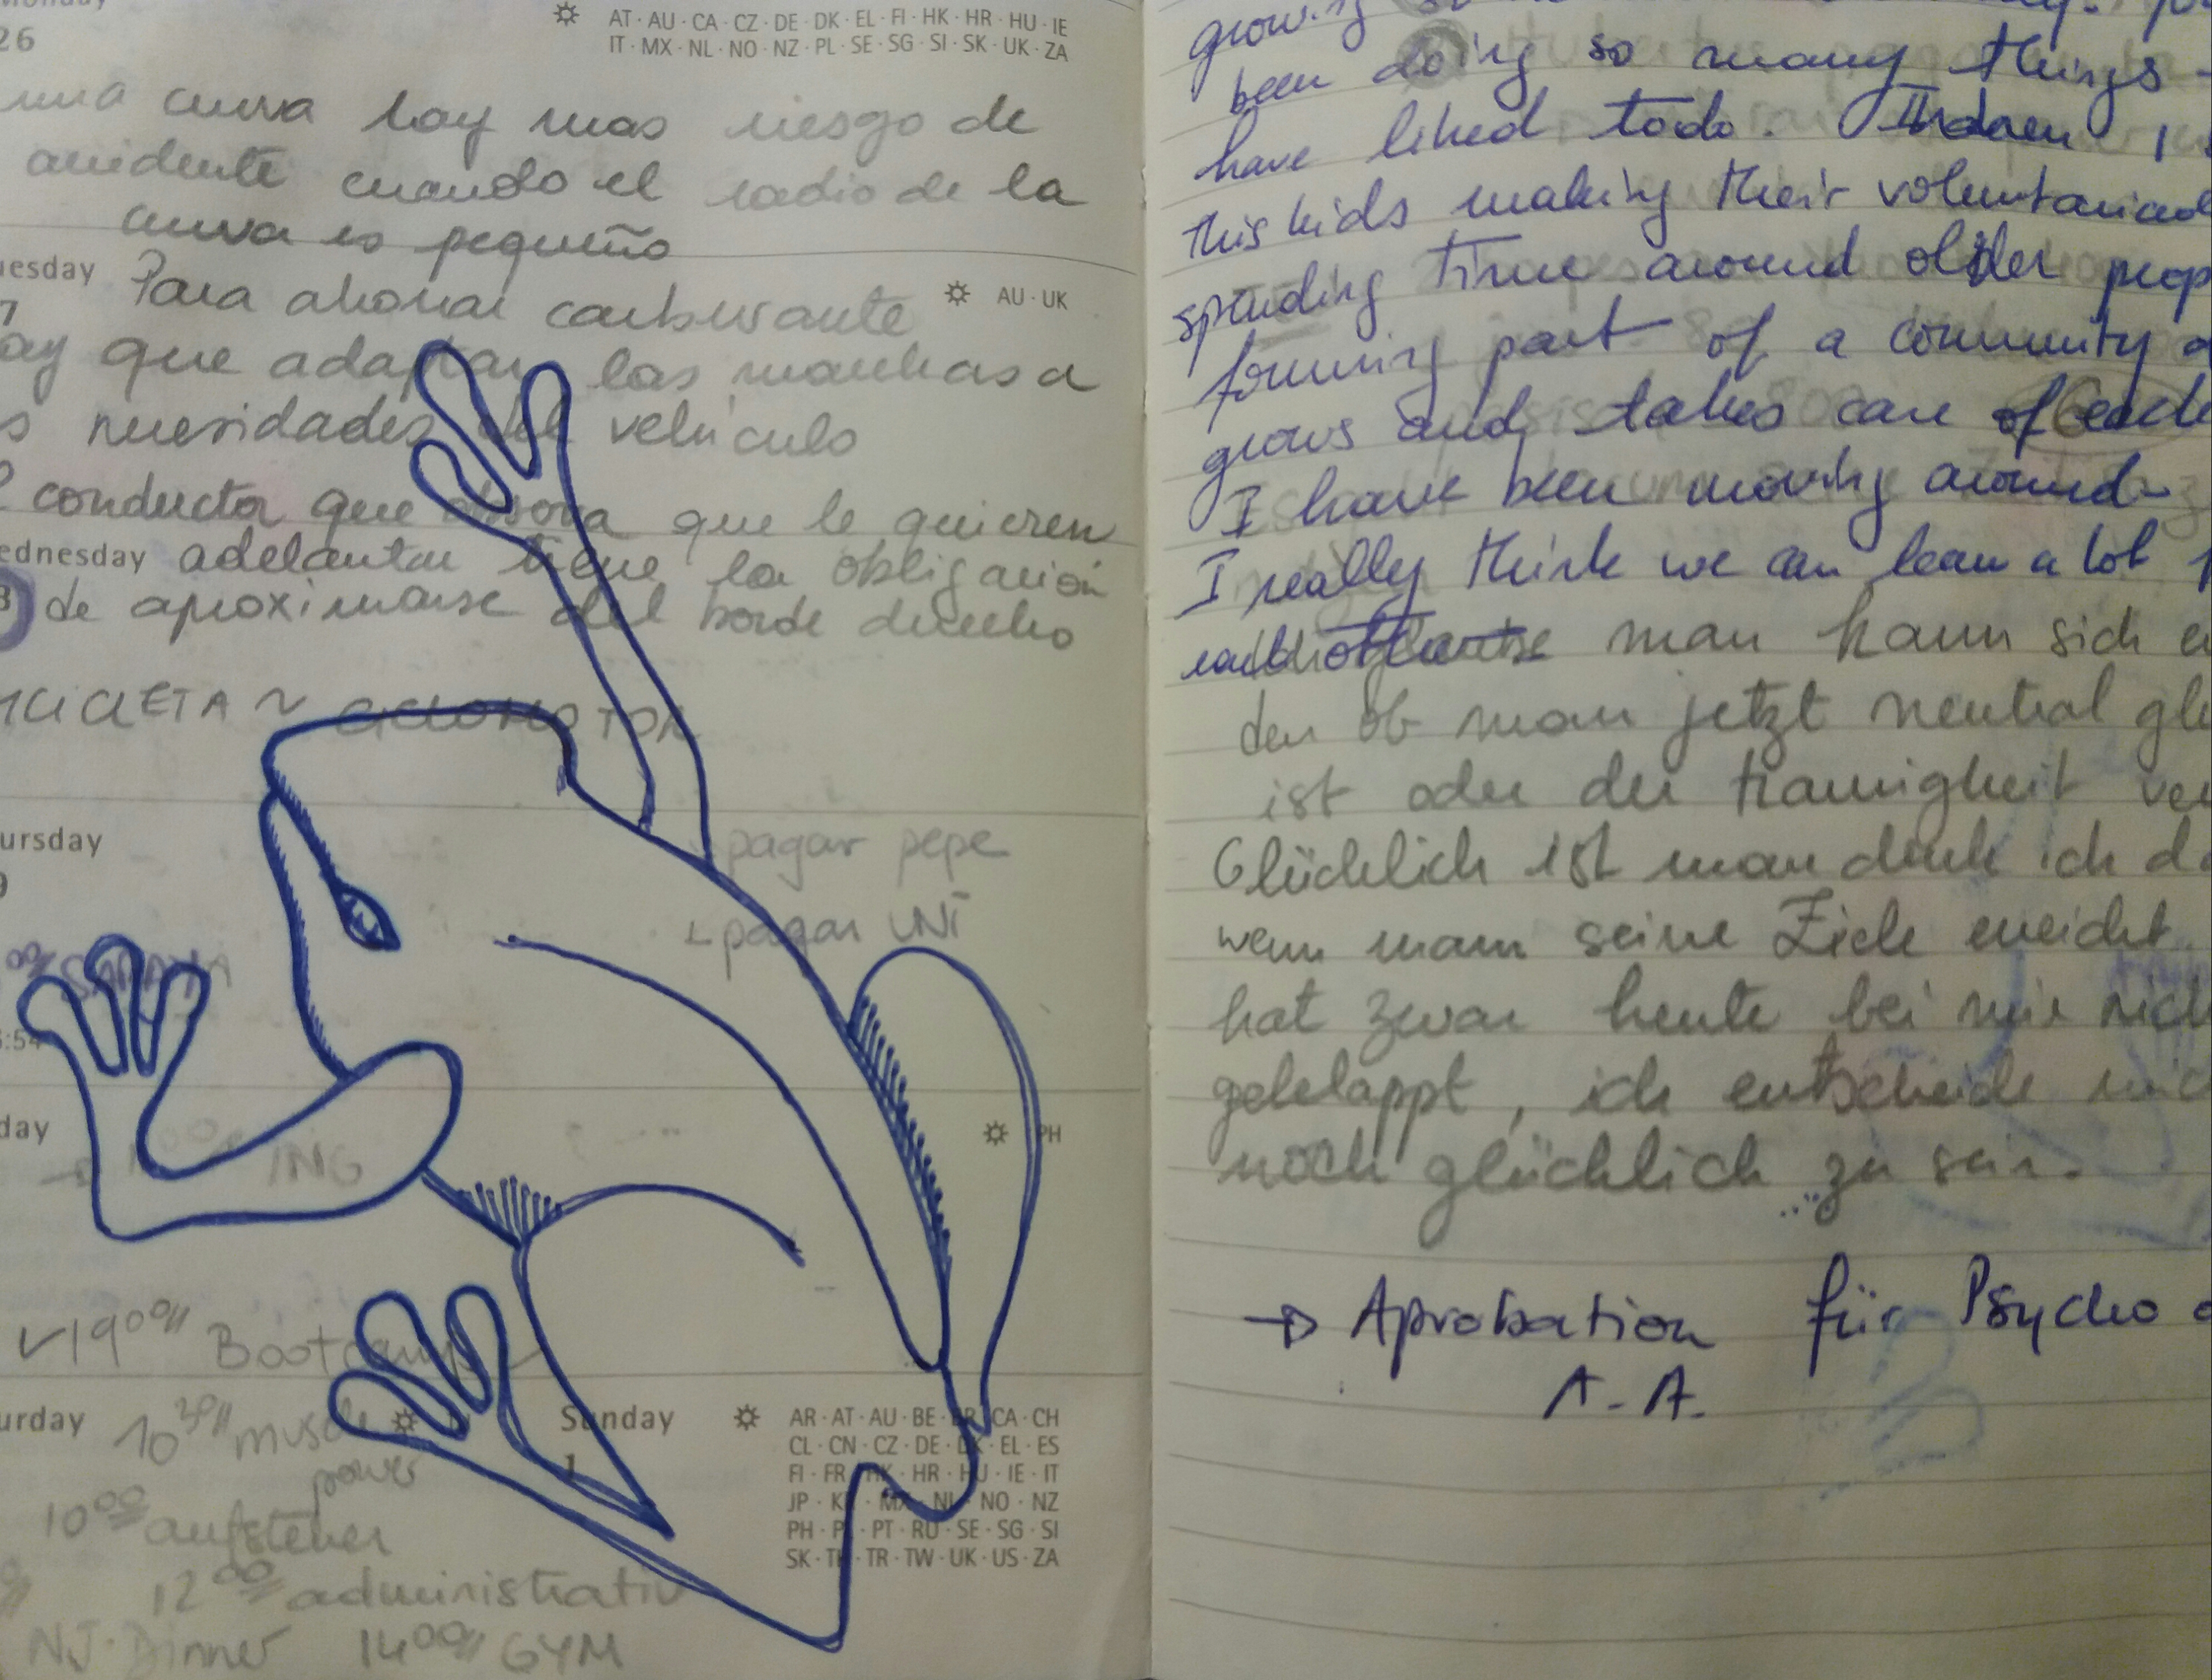 26
AT · AU · CA · CZ · DE · DK · EL · FI · HK · HR · HU · IE
IT · MX · NL · NO · NZ · PL · SE · SG · SI · SK · UK · ZA
curva hay mas riesgo de
accidente cuando el radio de la
curva es pequeño
uesday
AU · UK
Para ahorrar carburante
ay que adaptar las marchas a
s necesidades del vehículo
conductor que observa que le quieren
ednesday adelantar tiene la obligación
de aproximarse del borde derecho
CICLETA ~ CICLOMOTOR
ursday
9
pagar pepe
pagar UNI
:54
day
PH
ING
19 00 Bootcamp
urday
10 30 muscle
power
Sunday
1
AR · AT · AU · BE · BR · CA · CH
CL · CN · CZ · DE · DK · EL · ES
FI · FR · HK · HR · HU · IE · IT
JP · KR · MX · NL · NO · NZ
PH · PL · PT · RU · SE · SG · SI
SK · TH · TR · TW · UK · US · ZA
10 00 aufstehen
12 00 administrativ
NJ · Dinner 14 00 GYM
growing
been doing so many things
have liked todo.
this kids making their
spending time around older peop
forming part of a community
grows and takes care of each
I have been moving around-
I really think we can learn a lot
man kann sich
den ob man jetzt neutral gl
ist oder der traurigkeit ver
Glücklich ist man denk ich d
wenn man seine Ziele erreicht
hat zwar heute bei mir nich
geklappt, ich entscheide mic
noch glücklich zu sein.
→ Aprobation für Psycho
A. A.